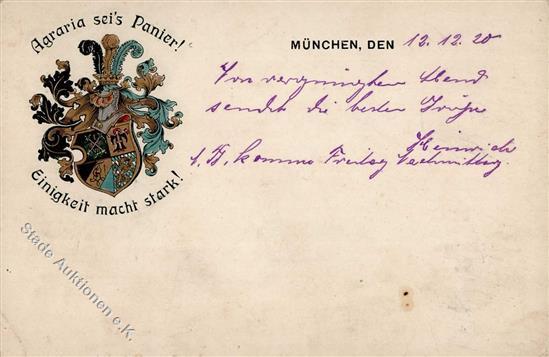 Agraria sei's Panier!
MÜNCHEN, DEN 13.12.20
Von vergnügtem Abend
sendet die besten Grüße
Heinrich
komme Freitag Nachmittag.
Einigkeit macht stark!
Stade Auktionen e.K.